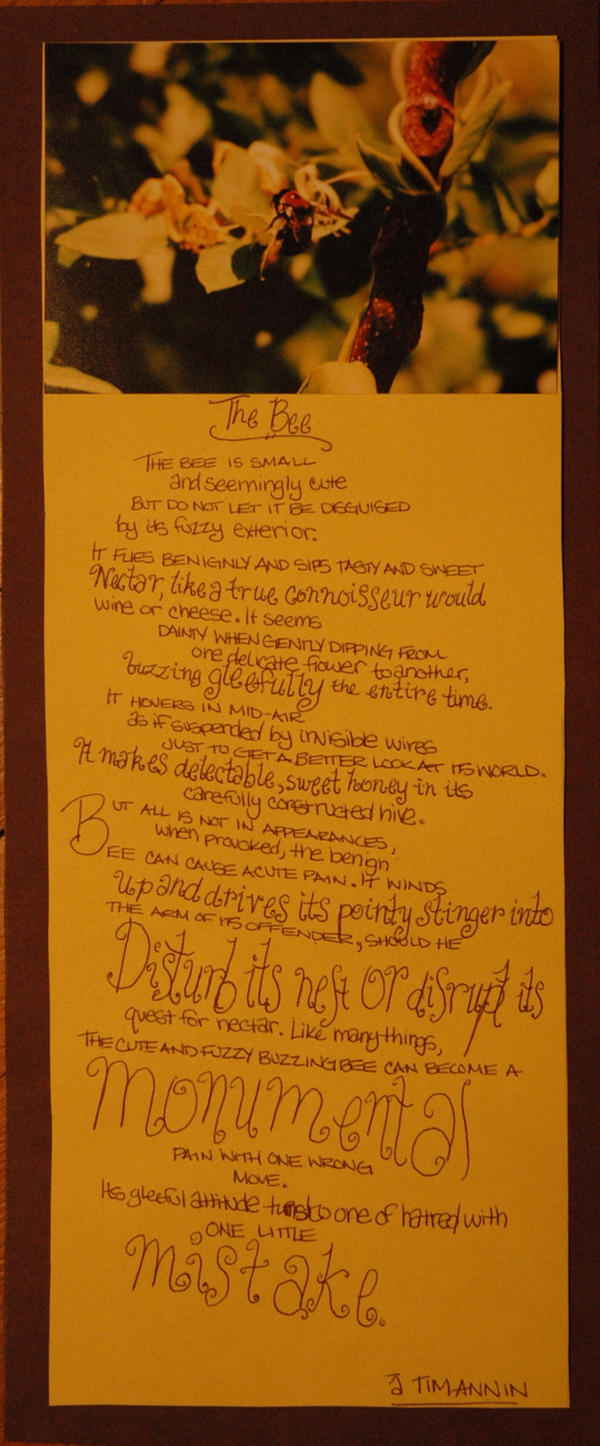 The Bee
THE BEE IS SMALL
and seemingly cute
BUT DO NOT LET IT BE DISGUISED
by its fuzzy exterior.
IT FLIES BENIGNLY AND SIPS TASTY AND SWEET
Nectar, like a true connoisseur would
wine or cheese. It seems
DAINTY WHEN GENTLY DIPPING FROM
one delicate flower to another,
buzzing gleefully the entire time.
IT HOVERS IN MID-AIR
as if suspended by invisible wires
JUST TO GET A BETTER LOOK AT ITS WORLD.
It makes delectable, sweet honey in its
carefully constructed hive.
BUT ALL IS NOT IN APPEARANCES,
when provoked, the benign
BEE CAN CAUSE ACUTE PAIN. IT WINDS
up and drives its pointy stinger into
THE ARM OF ITS OFFENDER, SHOULD HE
Disturb its nest or disrupt its
quest for nectar. Like many things,
THE CUTE AND FUZZY BUZZING BEE CAN BECOME A
monumental
PAIN WITH ONE WRONG
MOVE.
Its gleeful attitude turns to one of hatred with
ONE LITTLE
mistake.
TIMANNIN